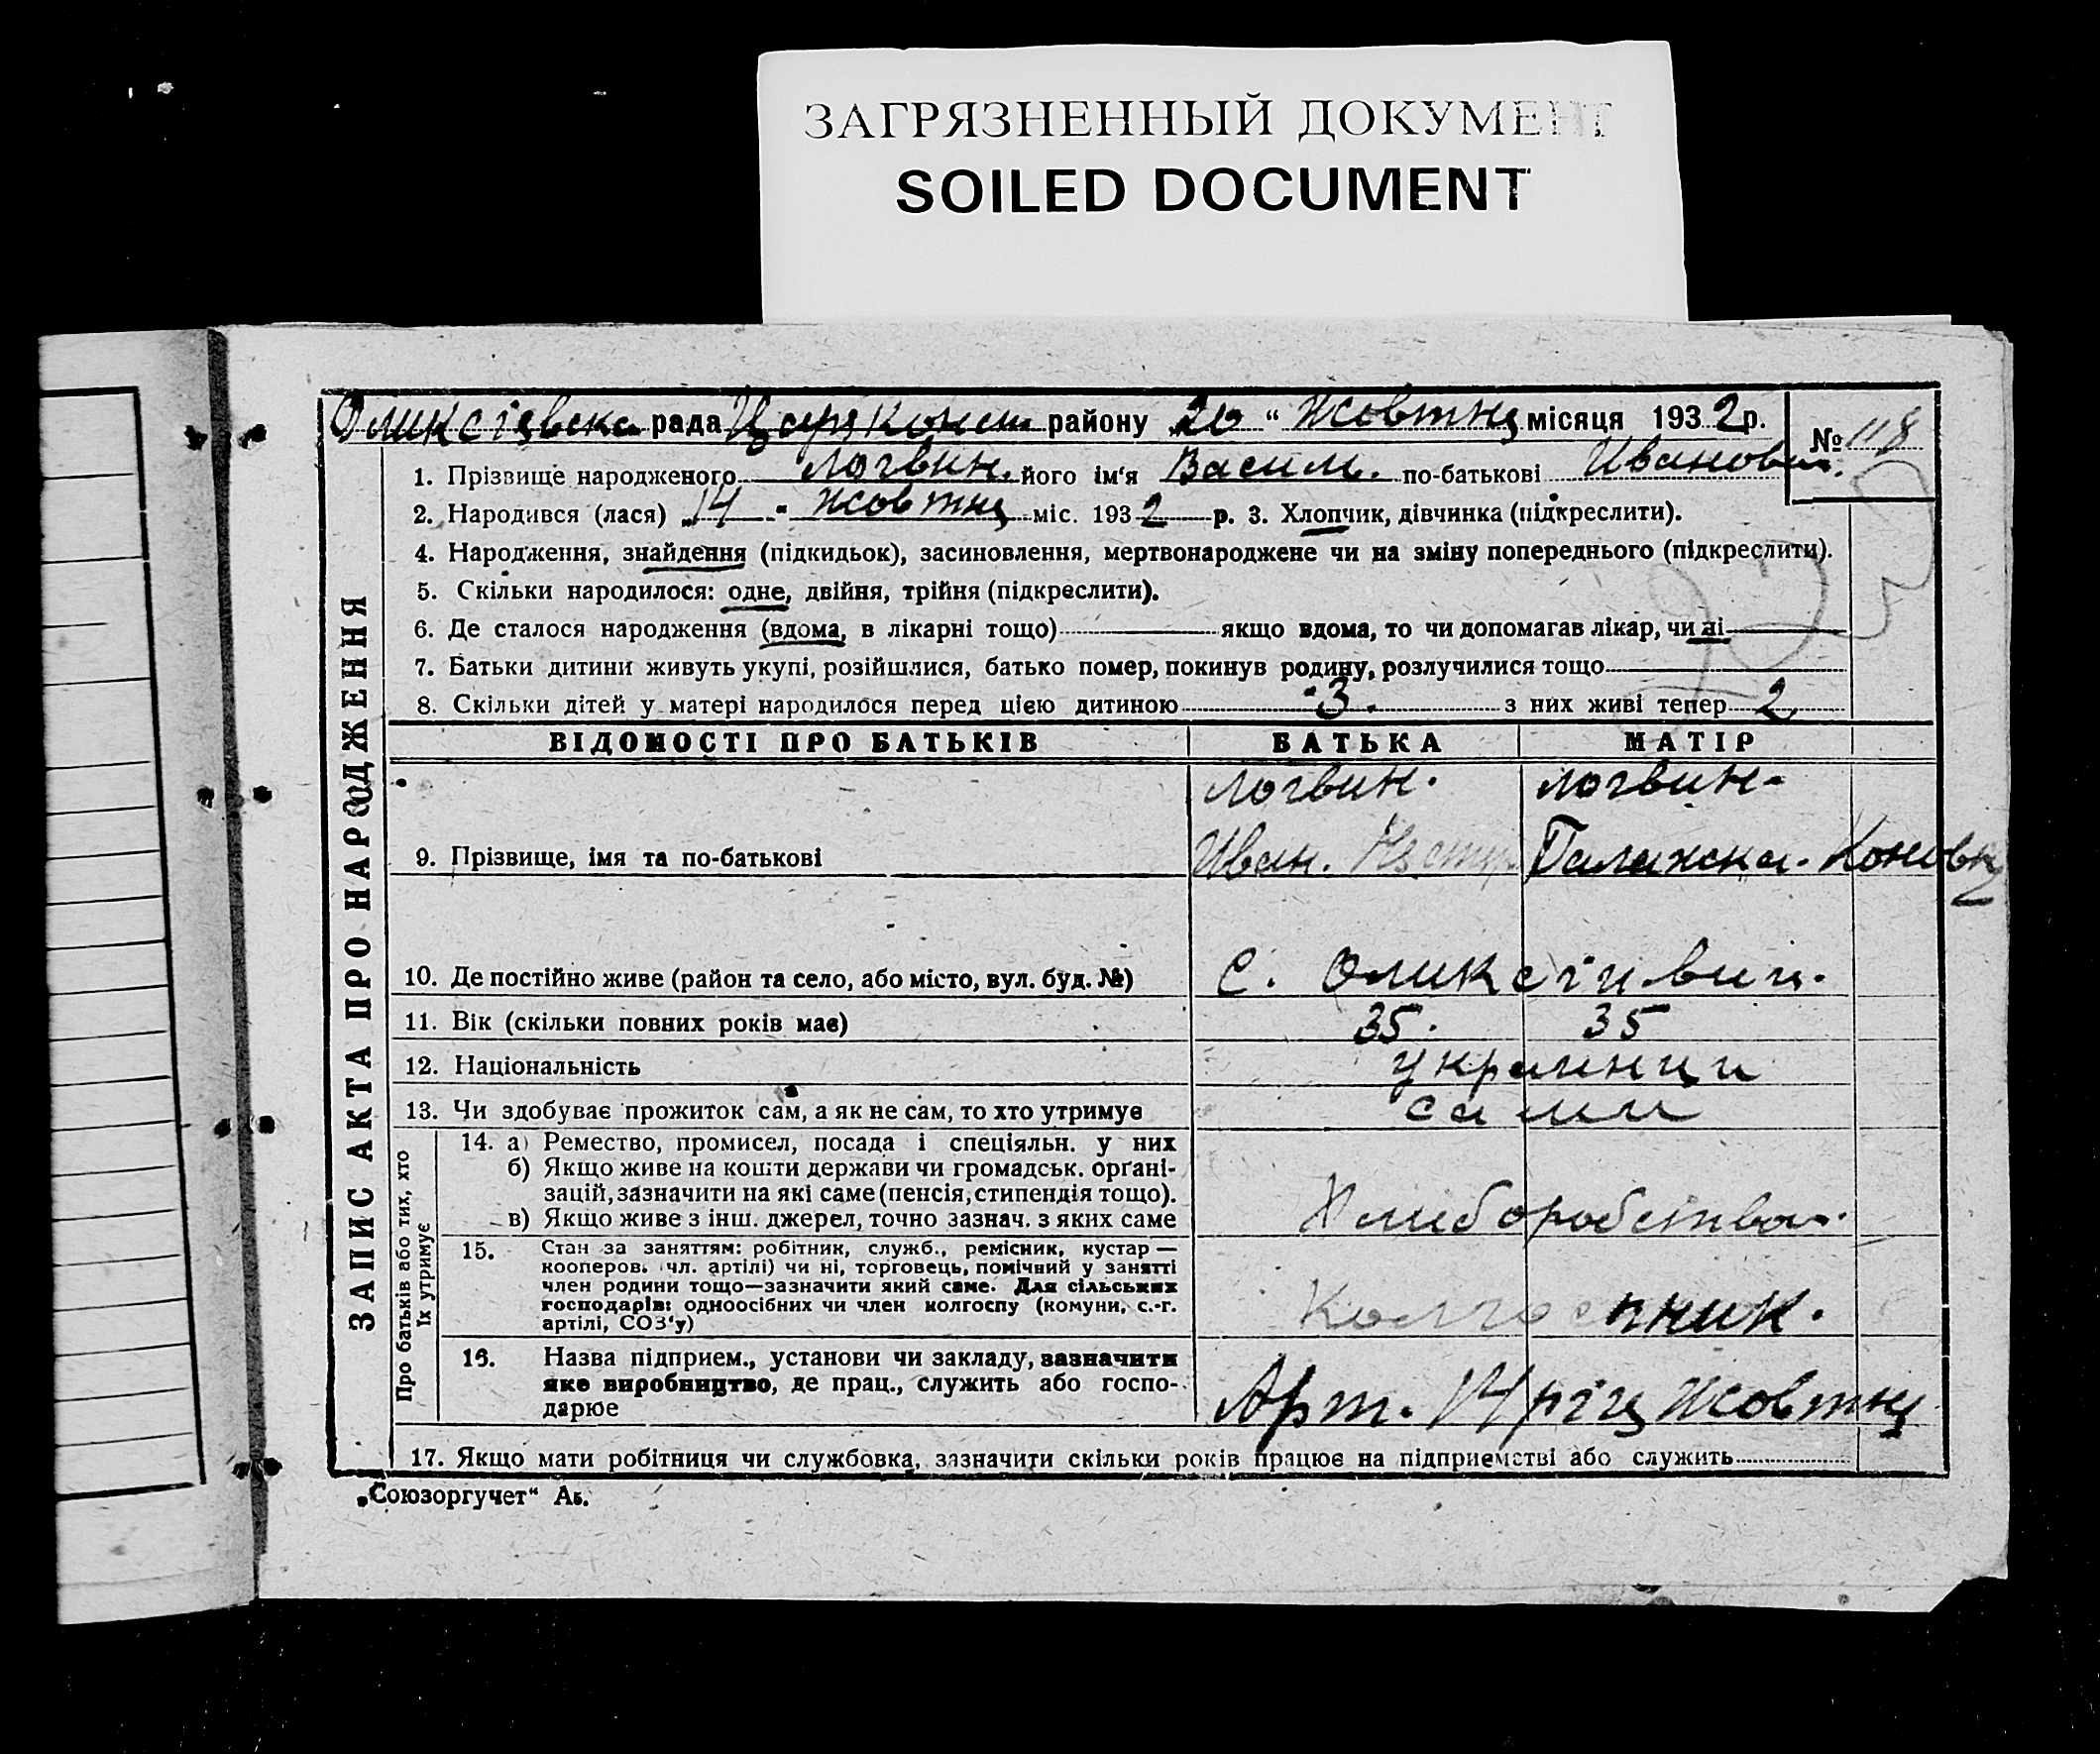 ЗАГРЯЗНЕННЫЙ ДОКУМЕНТ
SOILED DOCUMENT
рада район у 20 “ Жовтня місяця 1932 р.
№ 118
1. Прізвище народженого Логвин. його ім‘я Васил. по-батькові Иванович.
2. Народився (лася) „14 - жовтня міс. 1932 р. 3. Хлопчик, дівчинка (підкреслити).
4. Народження, знайдення (підкидьок), засиновлення, мертвонароджене чи на зміну попереднього (підкреслити).
5. Скільки народилося: одне, двійня, трійня (підкреслити).
6. Де сталося народження (вдома, в лікарні тощо) якщо вдома, то чи допомагав лікар, чи ні
7. Батьки дитини живуть укупі, розійшлися, батько помер, покинув родину, розлучилися тощо
8. Скільки дітей у матері народилося перед цією дитиною 3. з них живі тепер 2
ЗАПИС АКТА ПРО НАРОДЖЕННЯ
ВІДОМОСТІ ПРО БАТЬКІВ БАТЬКА МАТІР
Логвин. Логвин-
9. Прізвище, імя та по-батькові Иван. Палажка.
10. Де постійно живе (район та село, або місто, вул. буд. №) с. Оликсіивци.
11. Вік (скільки повних років має) 35. 35
12. Національність украинци
13. Чи здобуває прожиток сам, а як не сам, то хто утримує сами
Про батьків або тих, хто
їх утримує
14. а) Ремество, промисел, посада і спеціяльн. у них
б) Якщо живе на кошти держави чи громадськ. орґані-
зацій, зазначити на які саме (пенсія, стипендія тощо).
в) Якщо живе з інш. джерел, точно зазнач. з яких саме
Хлиборобства.
15. Стан за заняттям: робітник, служб., ремісник, кустар —
кооперов. чл. артілі) чи ні, торговець, помічний у занятті
член родини тощо—зазначити який саме. Для сільських
господарів: одноосібних чи член колгоспу (комуни, с.-г.
артілі, СОЗ‘у)
Колгоспник.
16. Назва підприєм., установи чи закладу, зазначити
яке виробництво, де прац., служить або госпо-
дарює
Арт. 14 ріц Жовтня
17. Якщо мати робітниця чи службовка, зазначити скільки років працює на підприємстві або служить
„Союзоргучет“